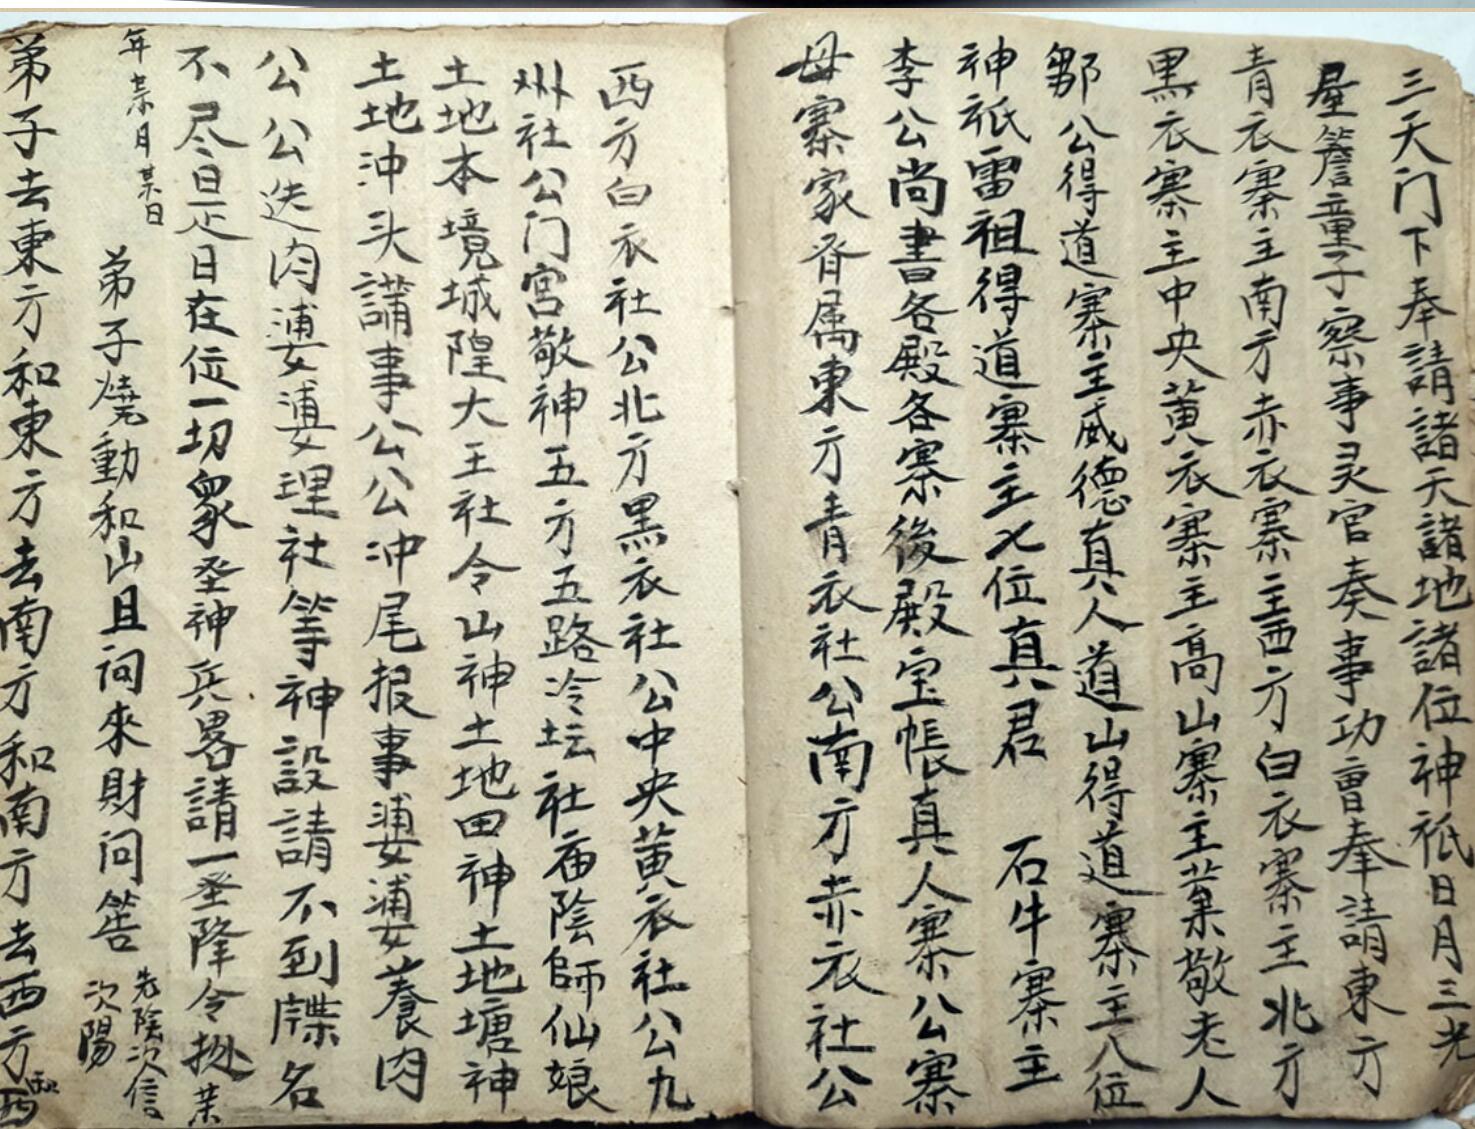 三天门下奉請諸天諸地諸位神祇日月三光
屋簷童子察事灵官奏事功曹奉請東方
青衣寨主南方赤衣寨主西方白衣寨主北方
黑衣寨主中央黄衣寨主高山寨主葉敬老人
鄒公得道寨主威德真人道山得道寨主八位
神祇雷祖得道寨主七位真君 石牛寨主
李公尚書各殿各寨後殿宝帳真人寨公寨
母寨家眷属東方青衣社公南方赤衣社公
西方白衣社公北方黑衣社公中央黄衣社公九
州社公门宫敬神五方五路冷坛社庙陰師仙娘
土地本境城隍大王社令山神土地田神土地塘神
土地冲头講事公公冲尾报事婆婆养肉
公公送肉婆婆理社等神設請不到牒名
不尽旦是日在位一切众圣神兵畧請一圣降令拯某
年某月某日
弟子燒動和山且问來財问答
先陰次信
次陽
弟子去東方和東方去南方和南方去西方和西